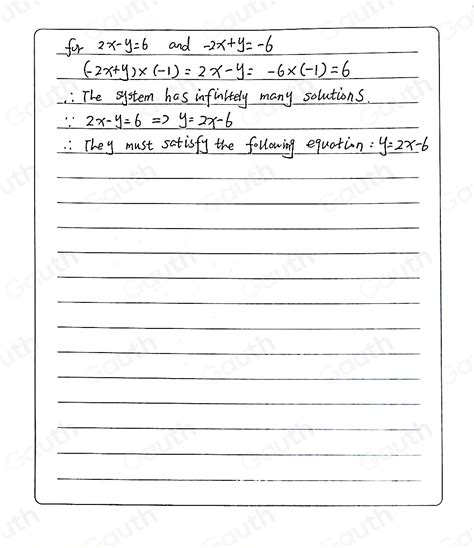 for 2x-y=6 and -2x+y=-6
(-2x+y)×(-1)=2x-y= -6×(-1)=6
∴ The system has infinitely many solutions.
∵ 2x-y=6 => y=2x-6
∴ They must satisfy the following equation: y=2x-6
Gauth